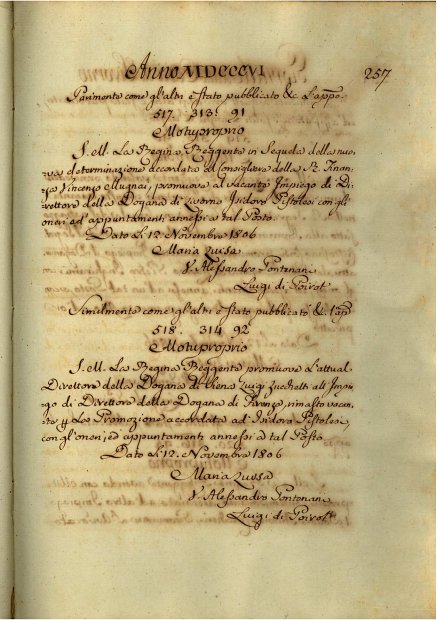 Anno MDCCCVI
257
Parimente come gl'altri è stato pubblicato &c. L'appo.
517. 313. 91
Motuproprio
S. M. La Regina Reggente in Sequela della nuo-
va determinazione accordata al Consigliere della R. Finan-
za Vincenzo Mugnai, promuove al vacante Impiego di Di-
rettore della Dogana di Livorno Isidoro Pistolesi con gl'
oneri ed appuntamenti annessi a tal Posto.
Dato Li 12 Novembre 1806
Maria Luisa
V. Alessandro Pontenani
Luigi di Poirot
Similmente come gl'altri è stato pubblicato &c. L'app
518. 314 92
Motuproprio
S. M. La Regina Reggente promuove L'attual
Direttore della Dogana di Siena Luigi Zucchetti all Impie-
go di Direttore della Dogana di Firenze, rimasto vacan-
te La Promozione accordata ad Isidoro Pistolesi,
con gl'oneri, ed appuntamenti annessi a tal Posto
Dato Li 12. Novembre 1806
Maria Luisa
V. Alessandro Pontenani
Luigi di Poirot